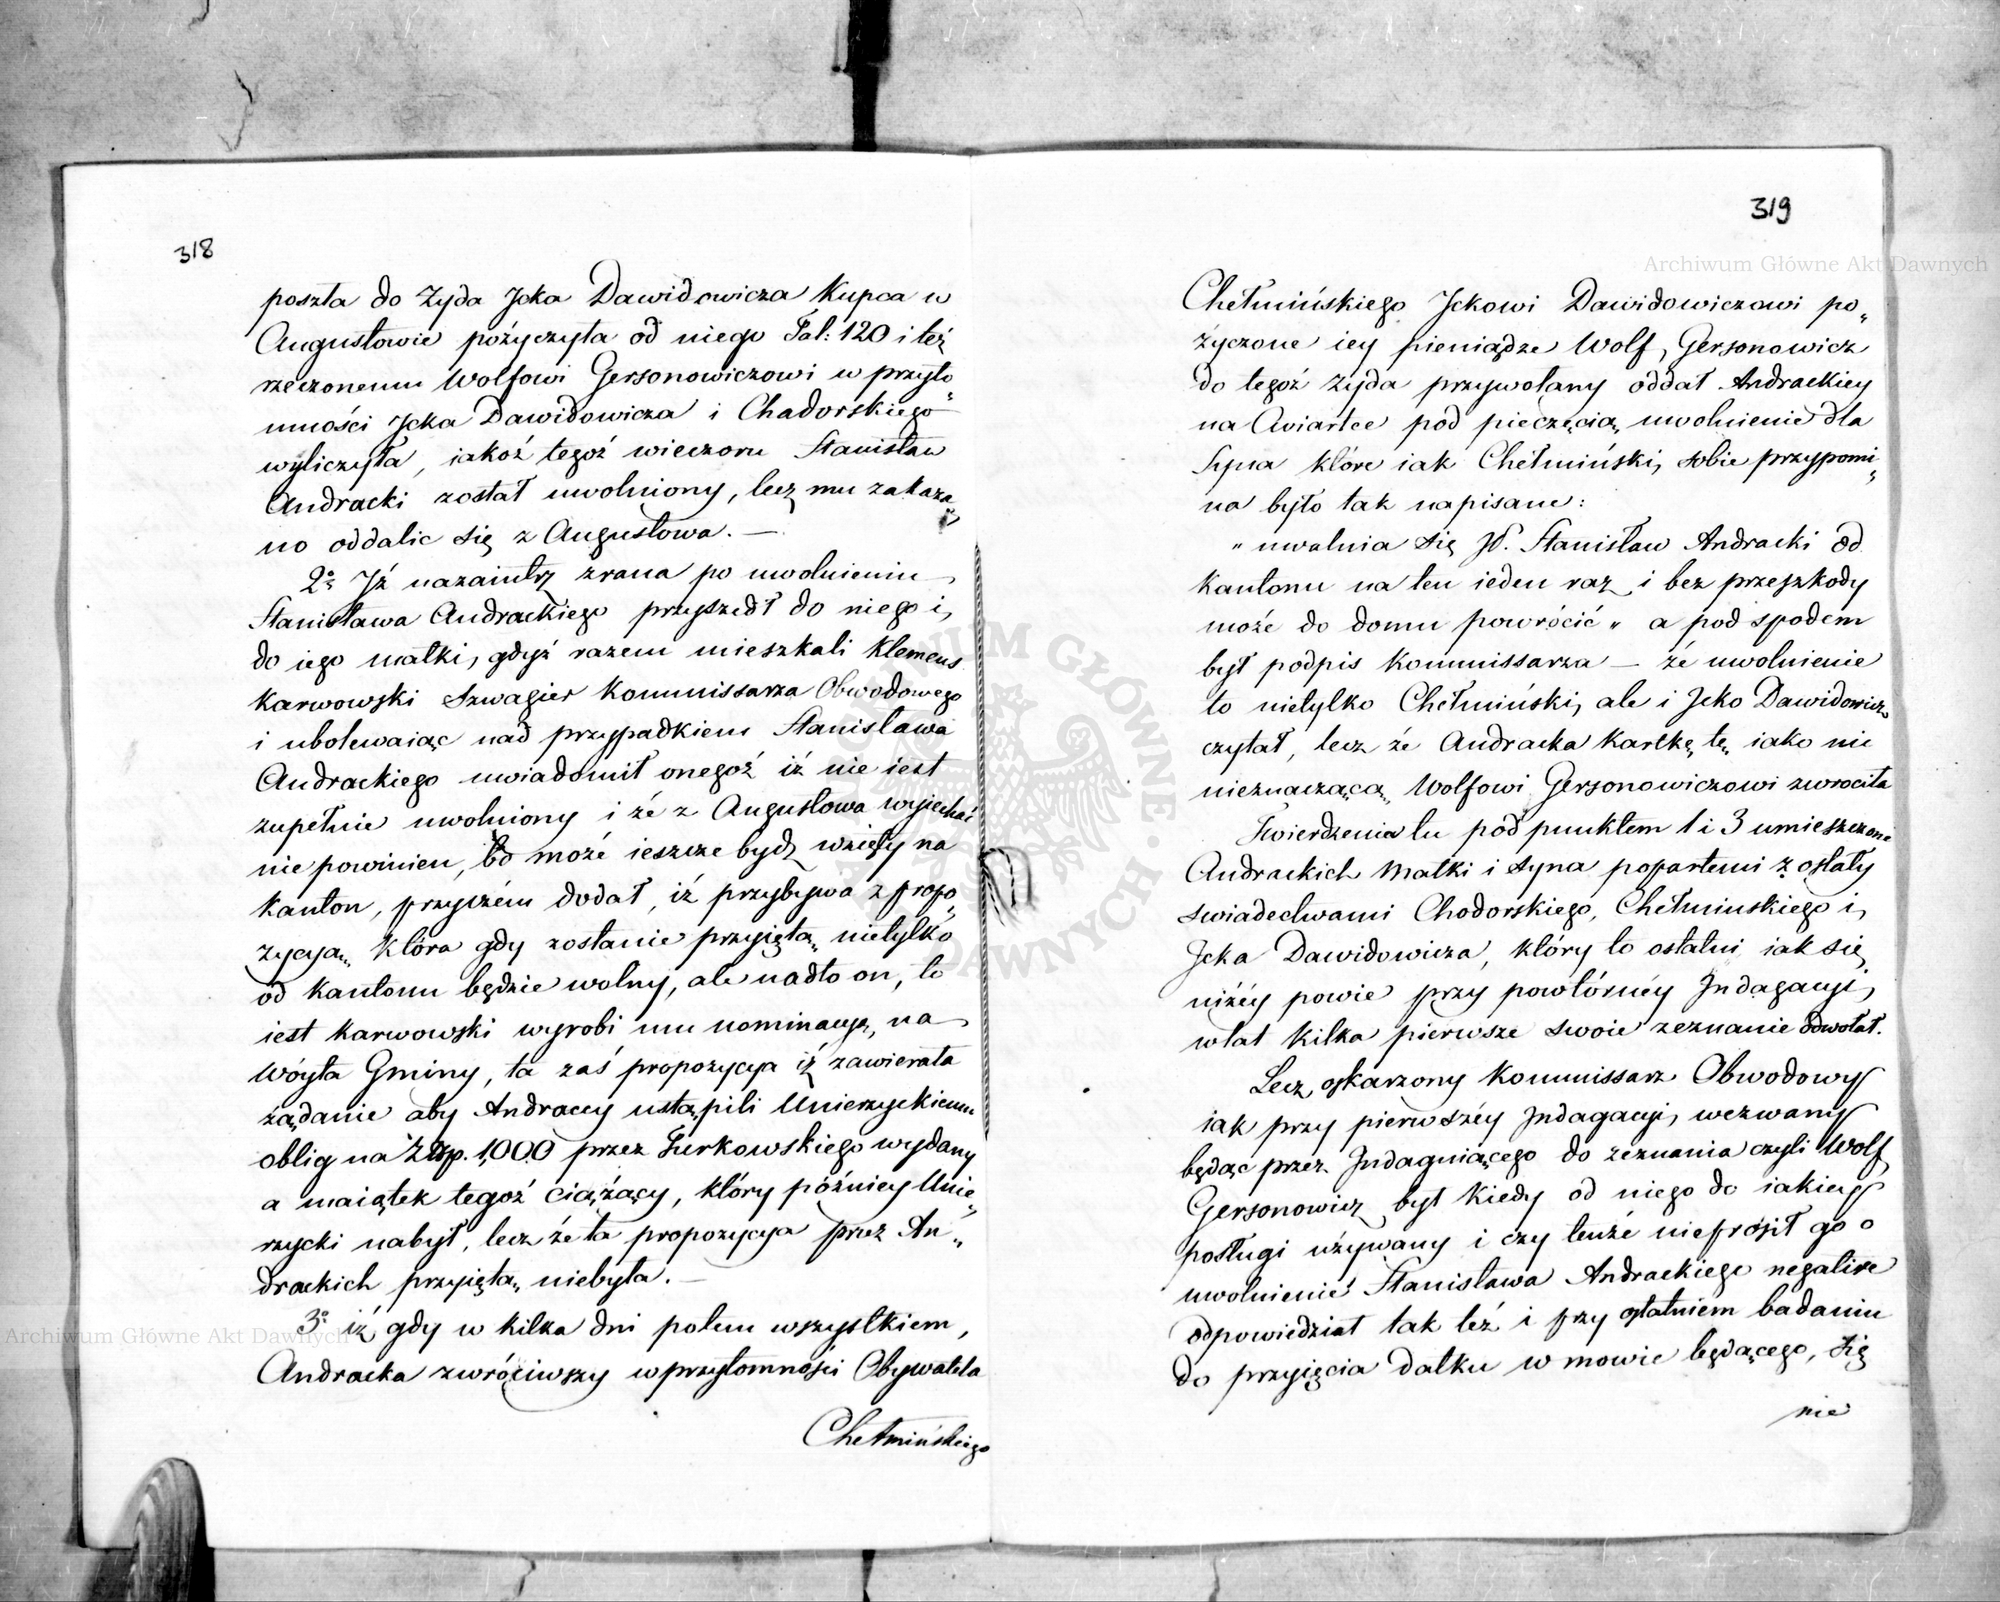 318
poszła do Żyda Jcka Dawidowicza Kupca w
Augustowie pożyczyła od niego Tal: 120 i też
rzeczonemu Wolfowi Gersonowiczowi w przyto„
mności Jcka Dawidowicza i Chadorskiego
wyliczyła, iakoż tegoż wieczoru Stanisław
Andracki został uwolniony, lecz mu zakaza„
no oddalic się z Augustowa. —
2o Jż nazaiutrz zrana po uwolnieniu
Stanisława Andrackiego przyszedł do niego i
do iego matki, gdyż razem mieszkali Klemens
Karwowski Szwagier Kommissarza Obwodowego
i ubolewaiąc nad przypadkiem Stanisława
Andrackiego uwiadomił onegoż iż nie iest
zupełnie uwolniony i że z Augustowa wyiechać
nie powinien, bo może ieszcze bydź wzięty na
kanton, przyczém dodał, iż przybywa z propo„
zycyą, która gdy zostanie przyiętą, nietylko
od kantonu będzie wolny, ale nadto on, to
iest Karwowski wyrobi mu nominacyą, na
Wóyta Gminy, ta zaś propozycya iż zawierała
żądanie aby Andraccy ustąpili Unierzyckiemu
oblig na Złp. 1,000 przez Turkowskiego wydany
a maiątek tegoż ciążący, który późniey Unie„
rzycki nabył, lecz że ta propozycya przez An„
drackich przyiętą niebyła. —
3o iż gdy w kilka dni potem wszystkiem,
Andracka zwróciwszy w przytomności Obywatela
Chełmińskiego
319
Chełmińskiego Jckowi Dawidowiczowi po„
życzone iey pieniądze Wolf, Gersonowicz
do tegoż żyda przywołany oddał Andrackiey
na Cwiartce pod pieczęcią, uwolnienie dla
Syna które iak Chełmiński, sobie przypomi„
na było tak napisane:
„ uwalnia się JP. Stanisław Andracki od
kantonu na ten ieden raz i bez przeszkody
może do domu powrócić „ a pod spodem
był podpis Kommissarza — że uwolnienie
to nietylko Chełmiński, ale i Jcko Dawidowicz
czytał, lecz że Andracka kartkę tę, iako nic
nieznaczącą, Wolfowi Gersonowiczowi zwrociła
Twierdzenia tu pod punktem 1 i 3 umieszczone
Andrackich Matki i Syna popartemi zostały
swiadectwami Chodorskiego, Chełminskiego i
Jcka Dawidowicza, który to ostatni iak się
niżéy powie przy powtórnéy Jndagacyi,
w lat kilka pierwsze swoie zeznanie odwołał.
Lecz oskarzony Kommissarz Obwodowy
iak przy pierwszéy Jndagacyi, wezwany
będąc przez Jndaguiącego do zeznania czyli Wolf
Gersonowicz był kiedy od niego do iakiey
posługi używany i czy tenże nieprosił go o
uwolnienie Stanisława Andrackiego negative
odpowiedział tak też i przy ostatniem badaniu
do przyięcia datku w mowie będącego, się
nie
Archiwum Główne Akt Dawnych
Archiwum Główne Akt Dawnych
ARCHIWUM GŁÓWNE AKT DAWNYCH